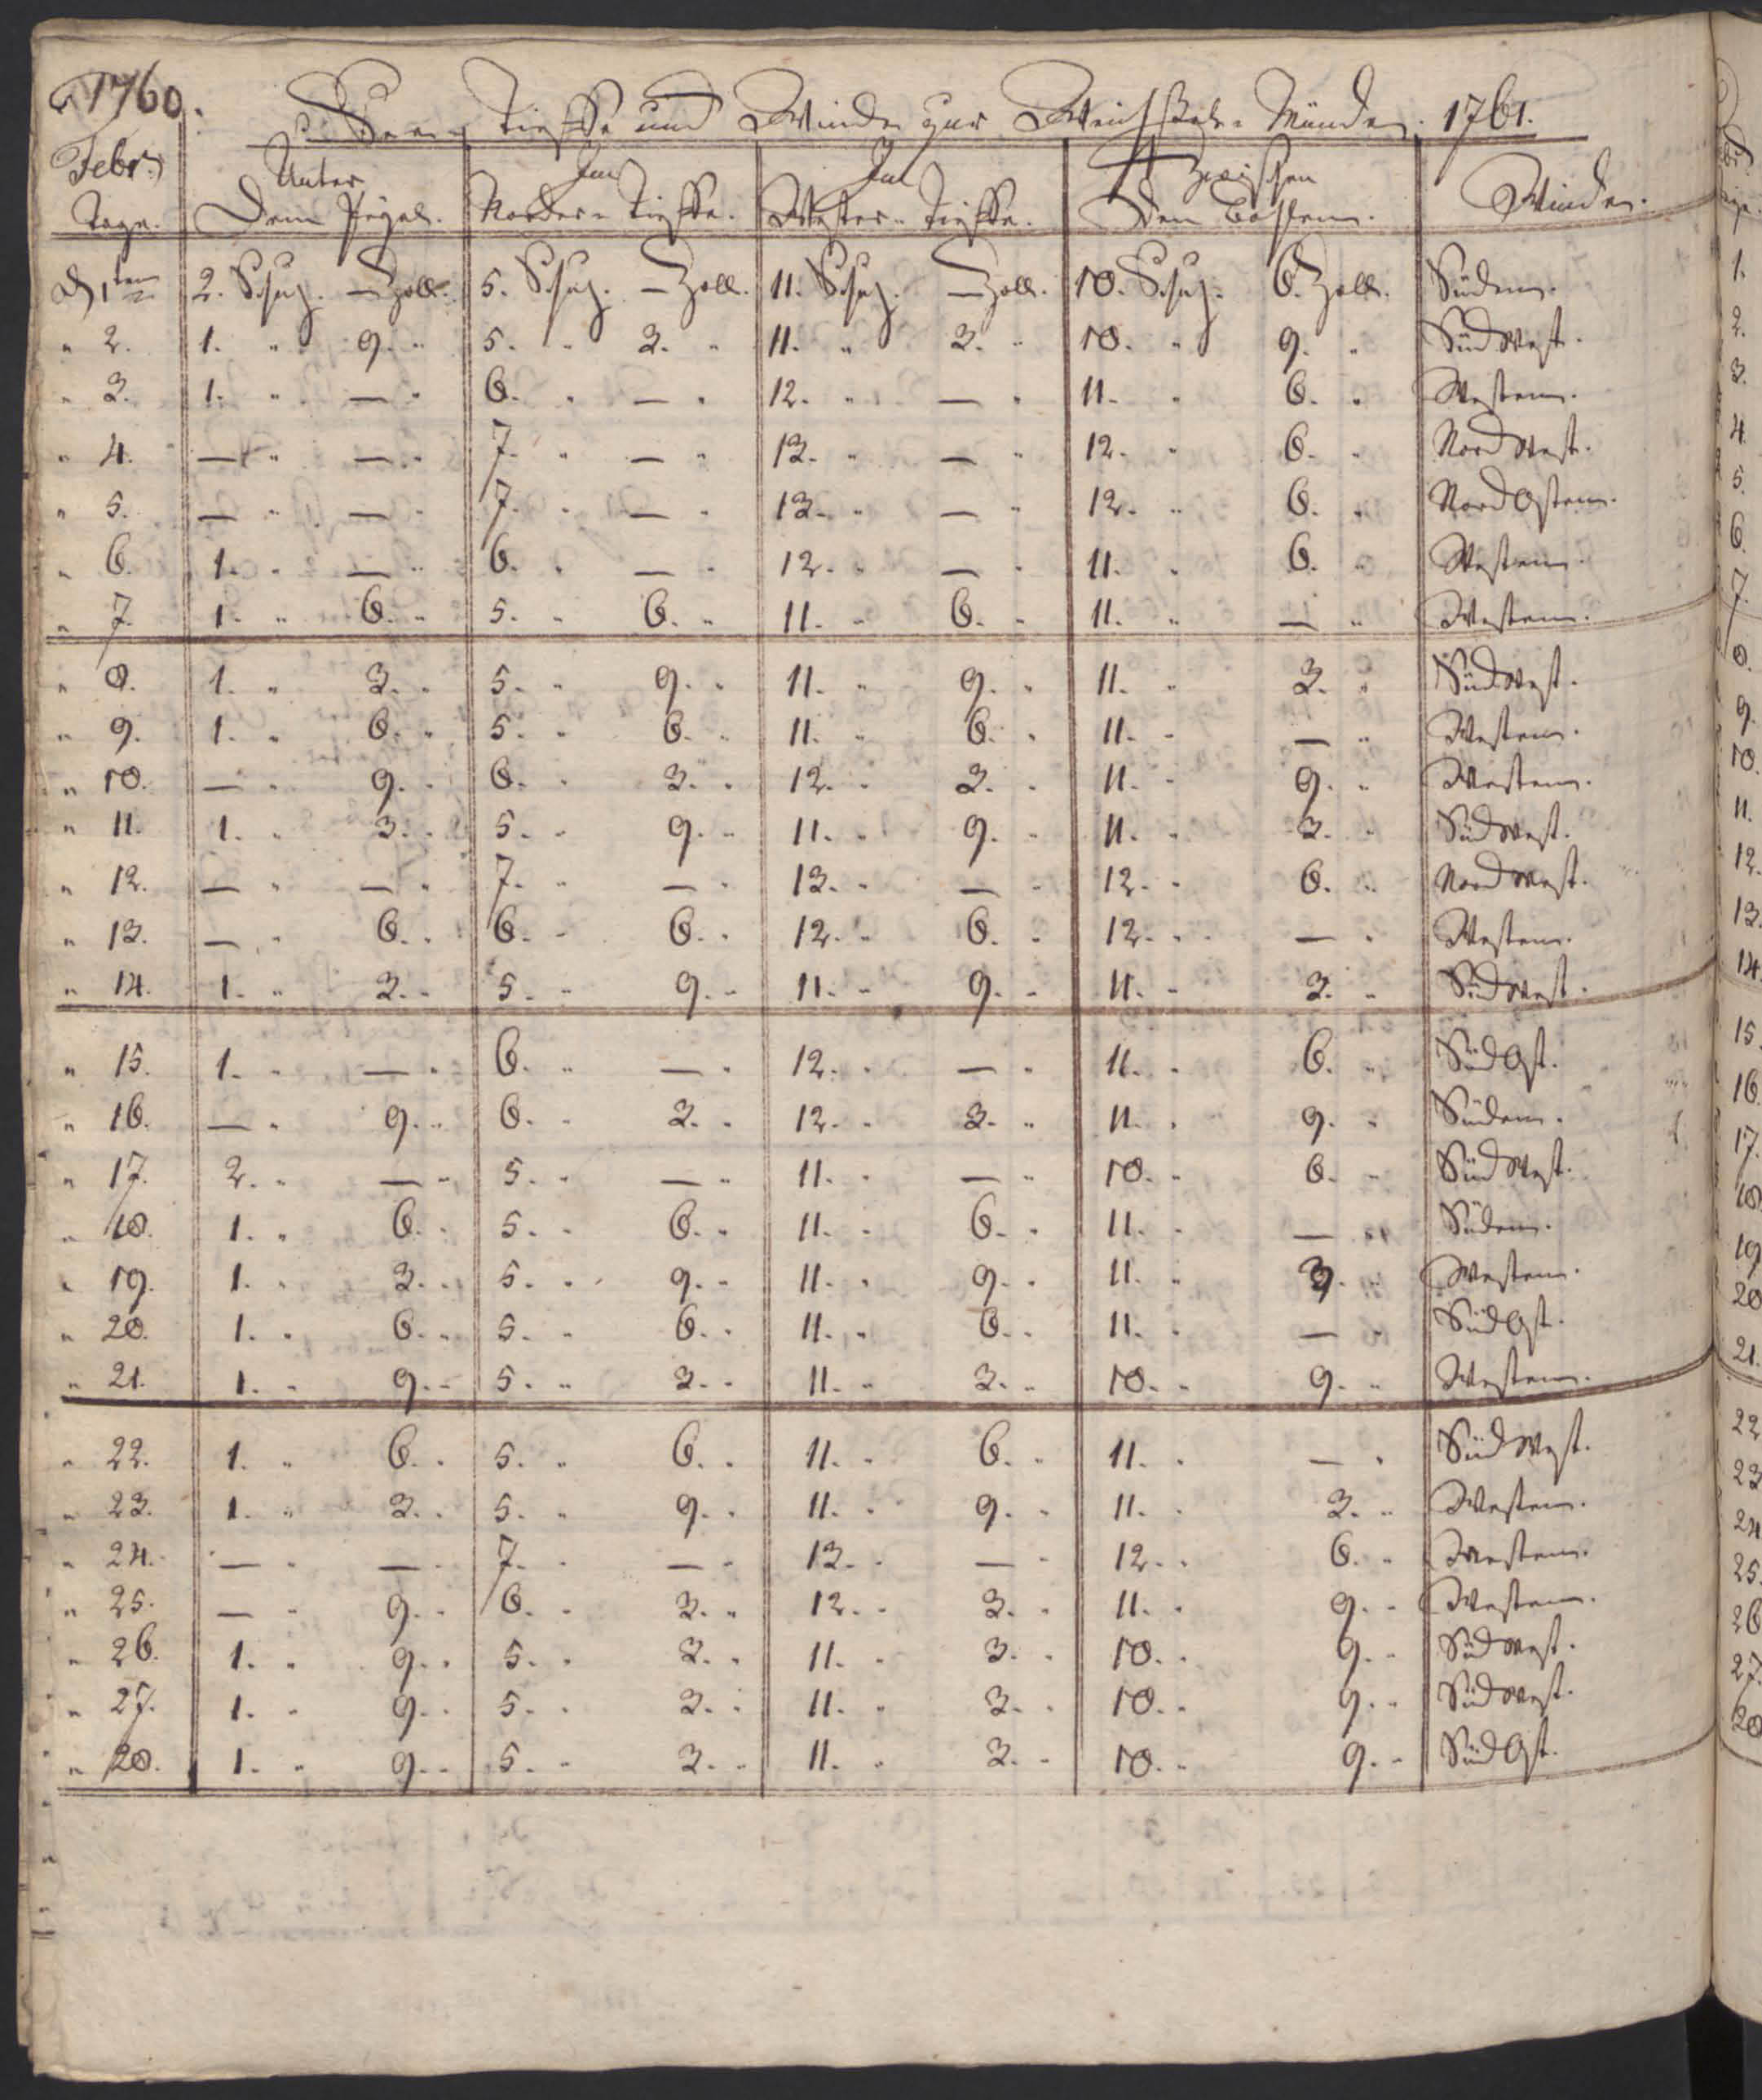 1760.
See- Tieffe und Winde zur Weichsel- Münde. 1761.
Febr:
Unter Im Im Zwischen
Tage. Dem Pegel. Norder- Tieffe. Wester- Tieffe. Den Bösten. Winde.
D 1ten 2. Schuh. — Zoll. 5. Schuh. — Zoll. 11. Schuh. — Zoll. 10. Schuh. 6. Zoll. Süden.
" 2. 1. " 9. " 5. " 3. " 11. " 3. " 10. " 9. " Süd West.
" 3. 1. " — " 6. " — " 12. " — " 11. " 6. " Westen.
" 4. — " — " 7. " — " 13. " — " 12. " 6. " Nord West.
" 5. — " — " 7. " — " 13. " — " 12. " 6. " Nord Osten.
" 6. 1. " — " 6. " — " 12. " — " 11. " 6. " Westen.
" 7. 1. " 6. " 5. " 6. " 11. " 6. " 11. " — " Westen.
" 8. 1. " 3. " 5. " 9. " 11. " 9. " 11. " 3. " Süd West.
" 9. 1. " 6. " 5. " 6. " 11. " 6. " 11. " — " Westen.
" 10. — " 9. " 6. " 3. " 12. " 3. " 11. " 9. " Westen.
" 11. 1. " 3. " 5. " 9. " 11. " 9. " 11. " 3. " Süd West.
" 12. — " — " 7. " — " 13. " — " 12. " 6. " Nord West.
" 13. — " 6. " 6. " 6. " 12. " 6. " 12. " — " Westen.
" 14. 1. " 3. " 5. " 9. " 11. " 9. " 11. " 3. " Süd West.
" 15. 1. " — " 6. " — " 12. " — " 11. " 6. " Süd Ost.
" 16. — " 9. " 6. " 3. " 12. " 3. " 11. " 9. " Süden.
" 17. 2. " — " 5. " — " 11. " — " 10. " 6. " Süd West.
" 18. 1. " 6. " 5. " 6. " 11. " 6. " 11. " — " Süden.
" 19. 1. " 3. " 5. " 9. " 11. " 9. " 11. " 3. " Westen.
" 20. 1. " 6. " 5. " 6. " 11. " 6. " 11. " — " Süd Ost.
" 21. 1. " 9. " 5. " 3. " 11. " 3. " 10. " 9. " Westen.
" 22. 1. " 6. " 5. " 6. " 11. " 6. " 11. " — " Süd West.
" 23. 1. " 3. " 5. " 9. " 11. " 9. " 11. " 3. " Westen.
" 24. — " — " 7. " — " 13. " — " 12. " 6. " Westen.
" 25. — " 9. " 6. " 3. " 12. " 3. " 11. " 9. " Westen.
" 26. 1. " 9. " 5. " 3. " 11. " 3. " 10. " 9. " Süd West.
" 27. 1. " 9. " 5. " 3. " 11. " 3. " 10. " 9. " Süd West.
" 28. 1. " 9. " 5. " 3. " 11. " 3. " 10. " 9. " Süd Ost.
1.
2.
3.
4.
5.
6.
7.
8.
9.
10.
11.
12.
13.
14
15.
16.
17.
18.
19
20
21.
22
23
24
25.
26
27.
28